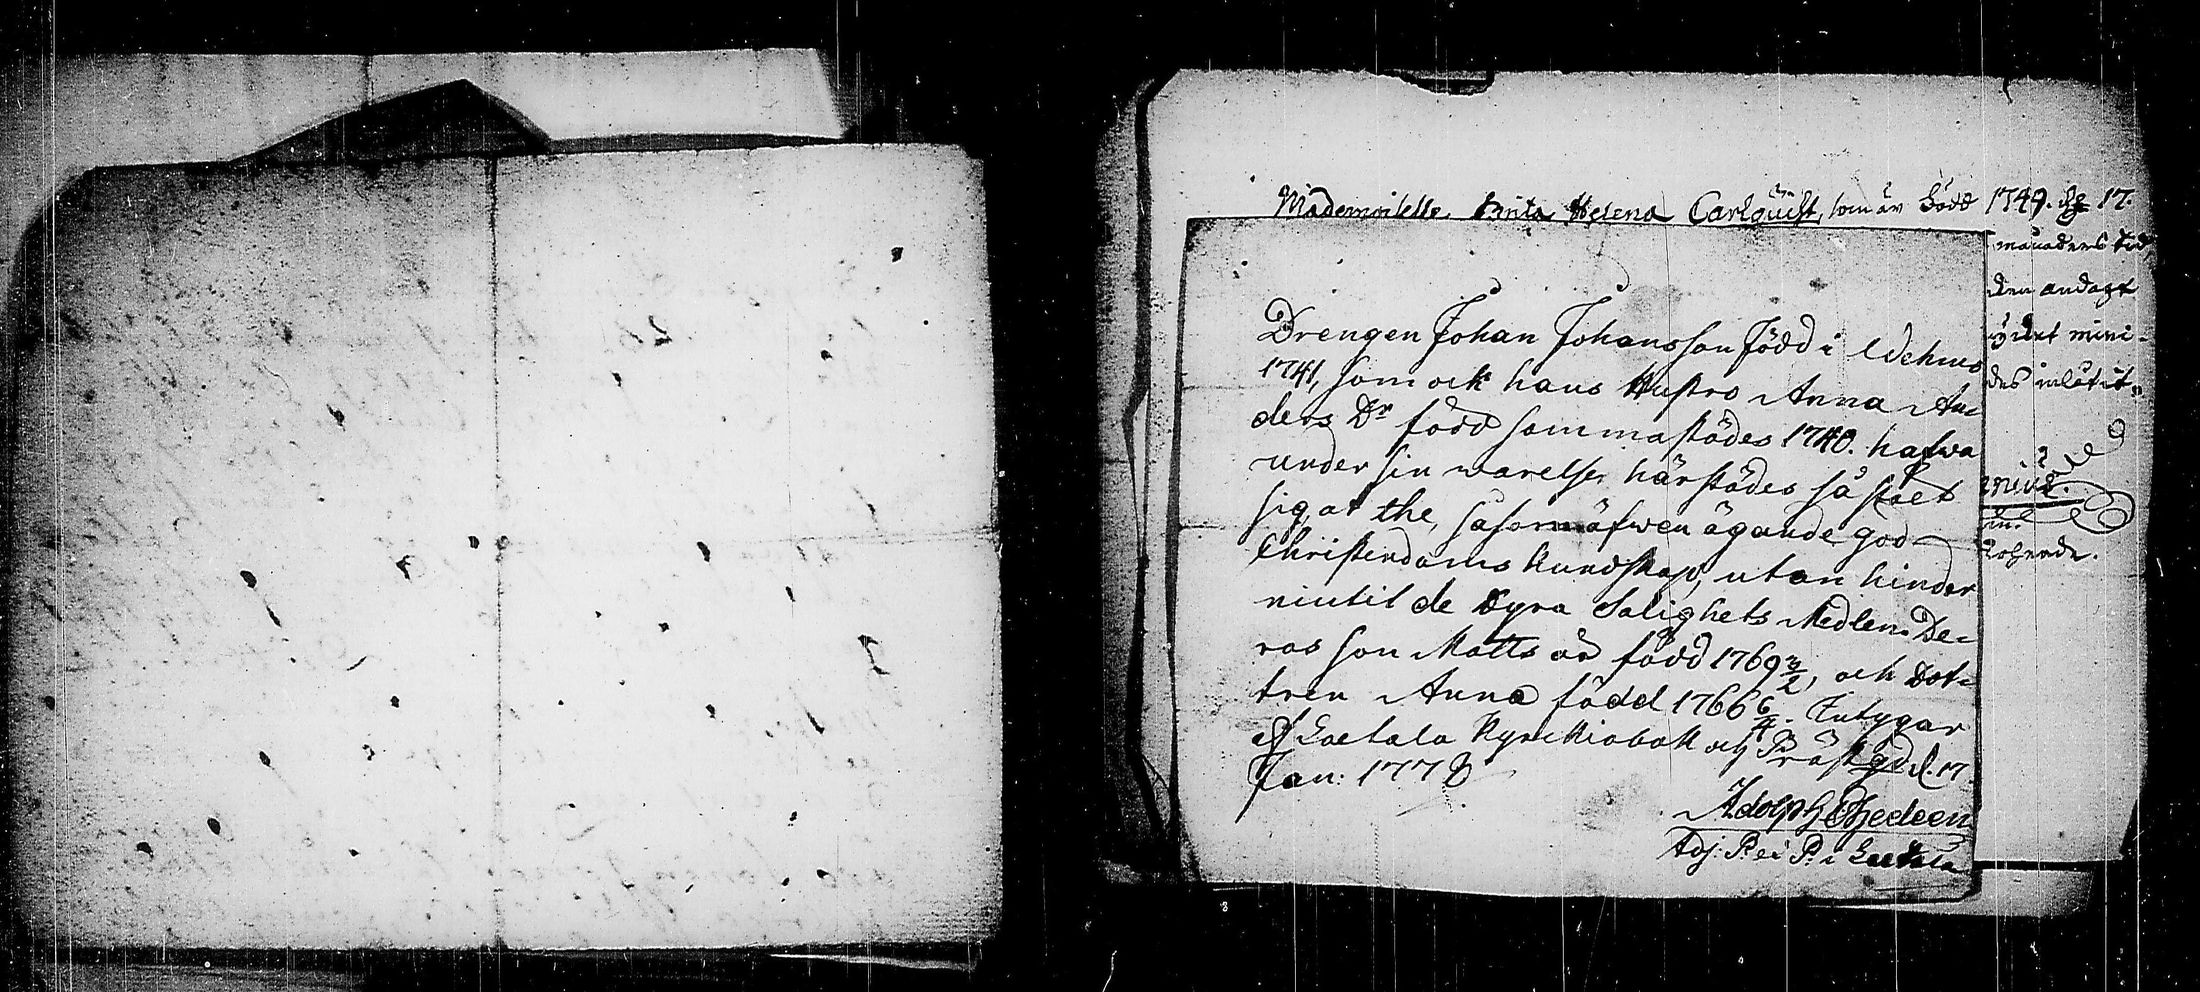 Mademoiselle Brita Helena Carlquist, som är född 1749. d. 17.
månaders tid
den andagt
des
Drengen Johan Johansson född i Wehmo
1741, som ock hans Hustro Anna An-
ders Dr född sammastädes 1740. hafwa
under sin warelse härstädes så stält
sig, at the, såsom äfwen ägande god
Christendoms kundskap, utan hinder
niutit de dyra Salighets Medlen. De-
ras son Matts är född 1769 3/2, och Dot-
tren Anna född 1766 6/4. Intygar
af Loetala Kyrckiobok och Prästgd d. 17
Jan: 1778
Adolph Thedeen
Adj: P. et P. i Loetala